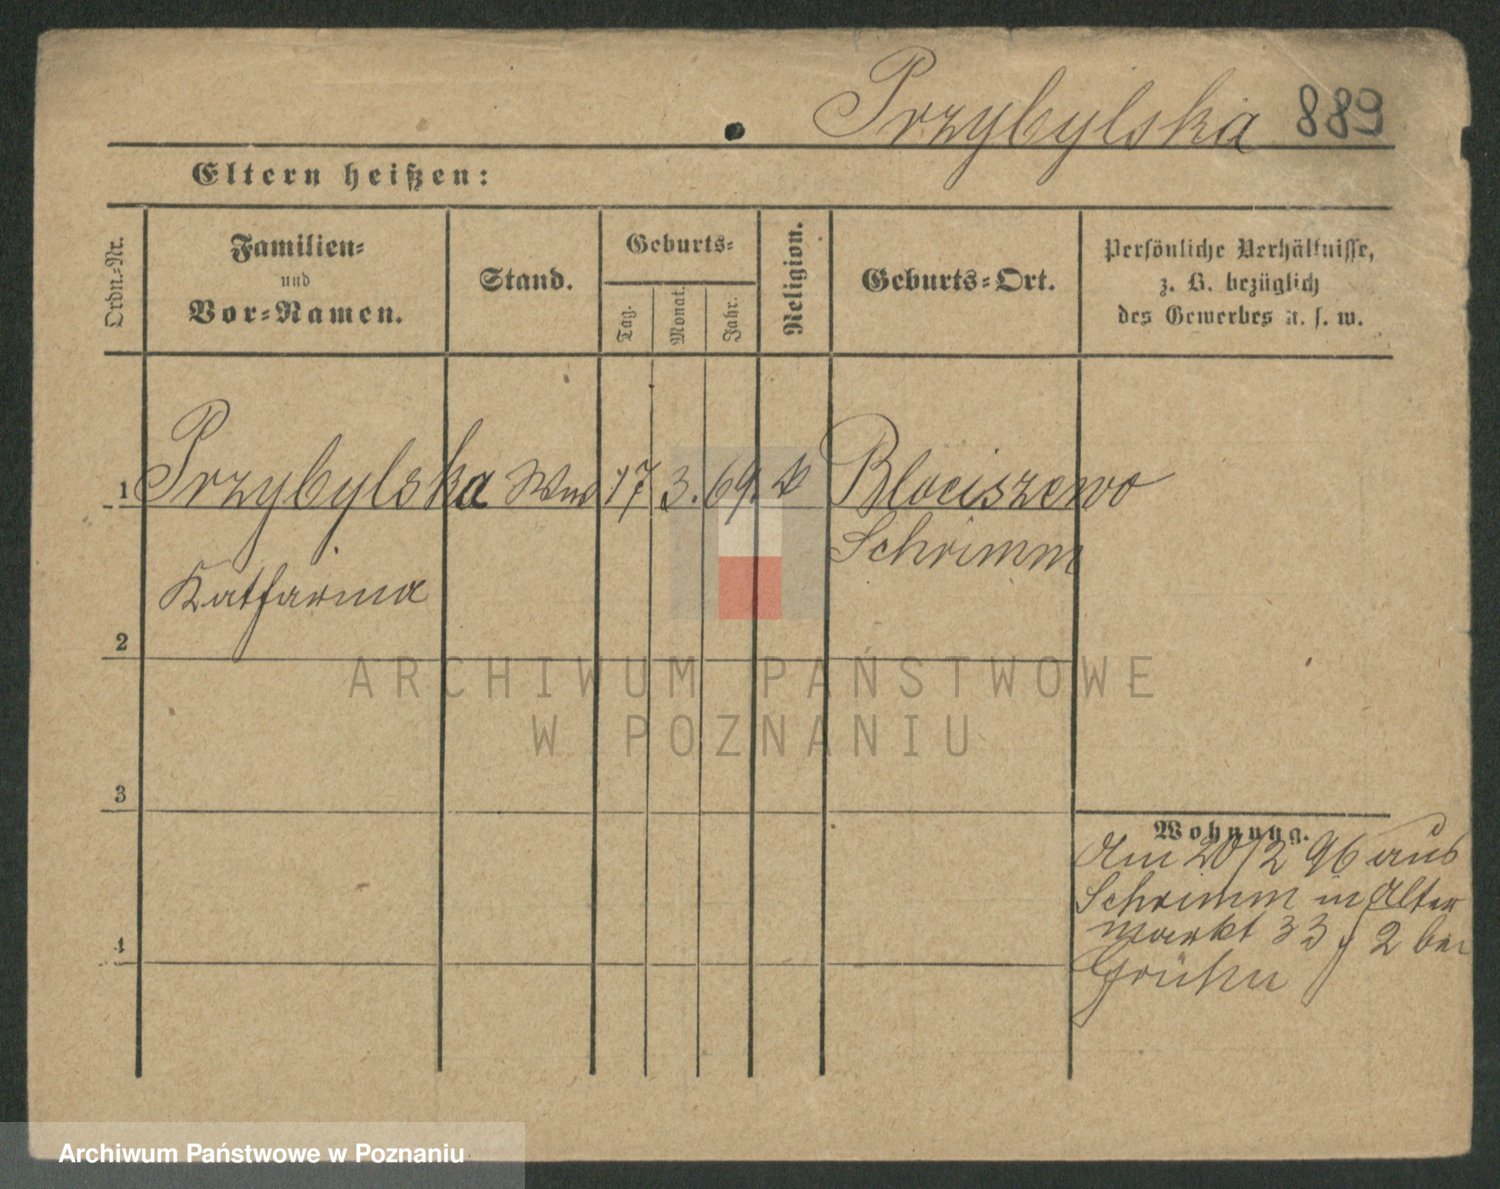 Przybylska 889
Eltern heißen:
Ordn.-Nr.
Familien-
und
Vor-Namen.
Stand.
Geburts-
Tag.
Monat.
Jahr.
Religion.
Geburts-Ort.
Persönliche Verhältnisse,
z. B. bezüglich
des Gewerbes u. s. w.
1 Przybylska 17 3. 69. Blociszewo
Schrimm
Katharina
2
3
4
Wohnung.
Am 20/2 96 aus
Schrimm in Alter
markt 33 2 bei
ARCHIWUM PAŃSTWOWE
W POZNANIU
Archiwum Państwowe w Poznaniu